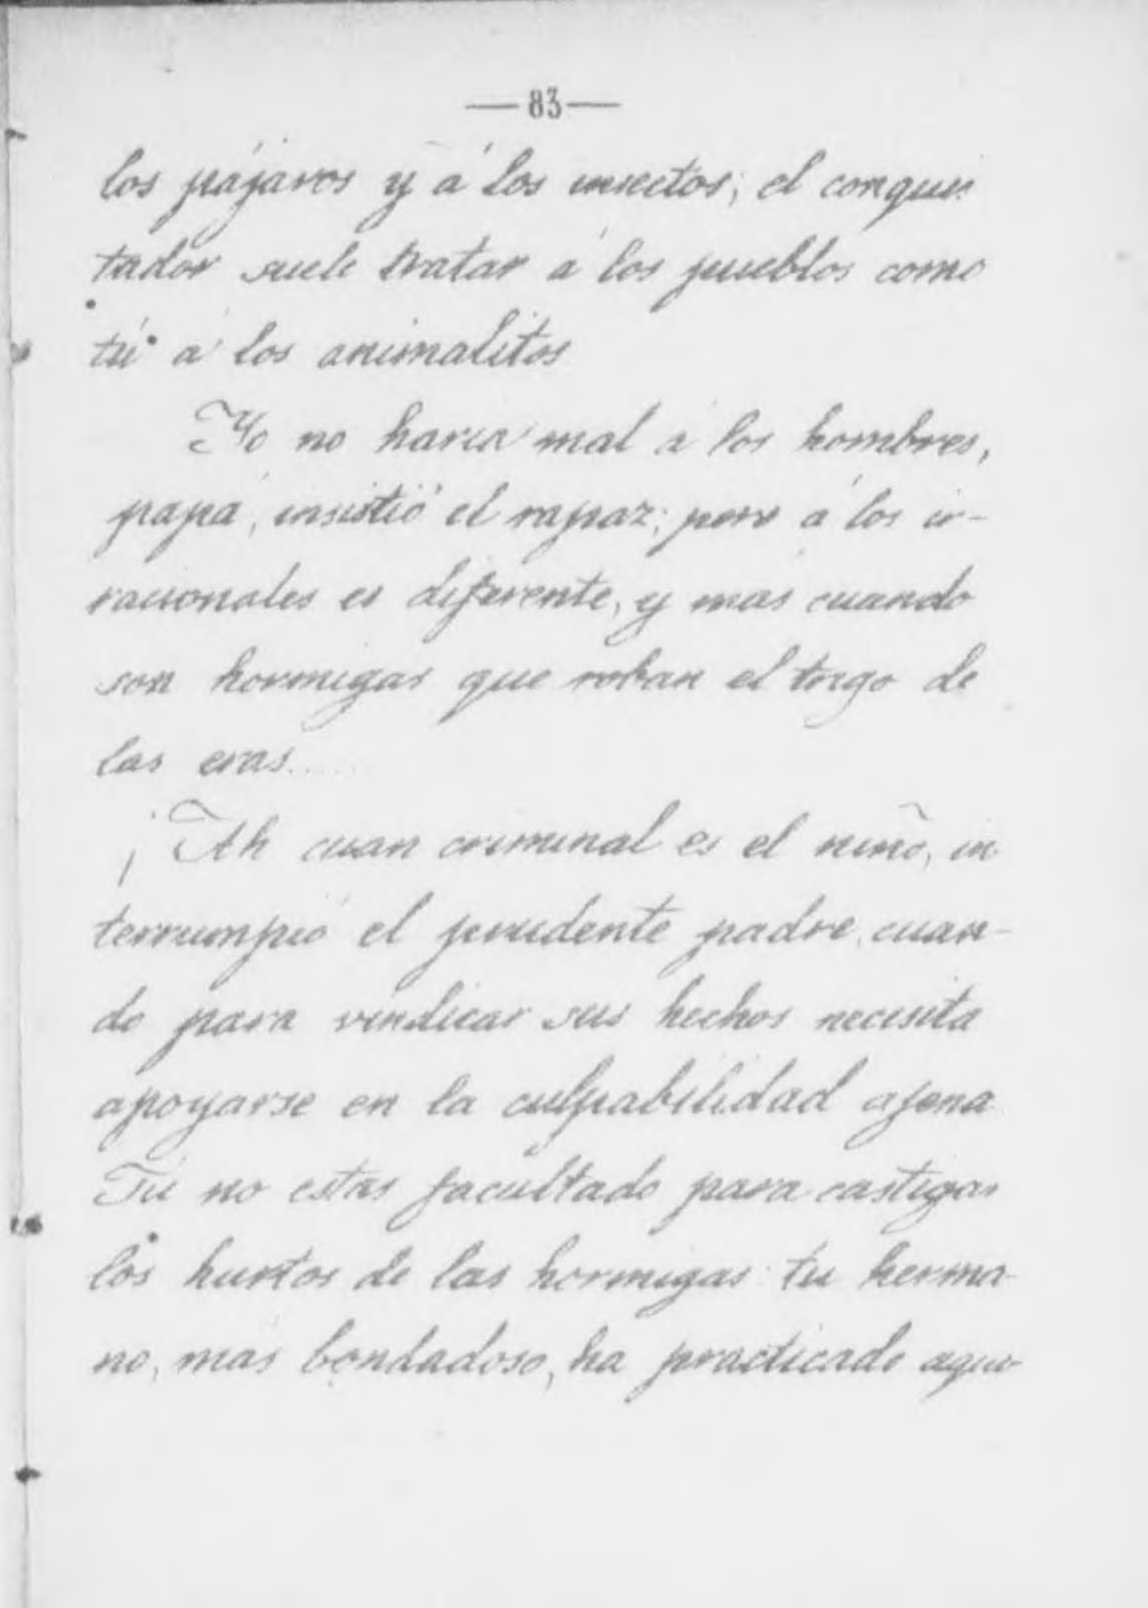 — 83 —
los pájaros y á los insectos; el conquis
tador suele tratar á los pueblos como
tú á los animalitos
Yo no haría mal á los hombres,
papá, insistió el rapaz; pero á los ir-
racionales es diferente, y mas cuando
son hormigas que roban el trigo de
las eras.....
¡Ah cuan criminal es el niño, in
terrumpió el prudente padre, cuan-
do para vindicar sus hechos necesita
apoyarse en la culpabilidad ajena
Tú no estas facultado para castigar
los hurtos de las hormigas tu herma-
no, mas bondadoso, ha practicado aque